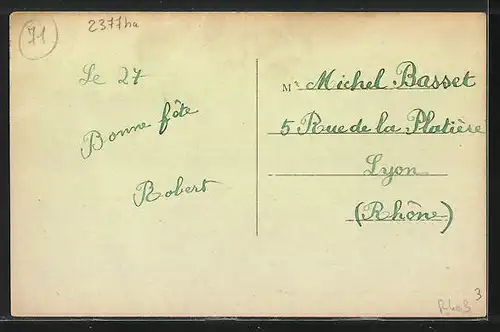 71
2377ha
Le 27
Bonne fête
Robert
M. Michel Basset
5 Rue de la Platière
Lyon
(Rhône)
3